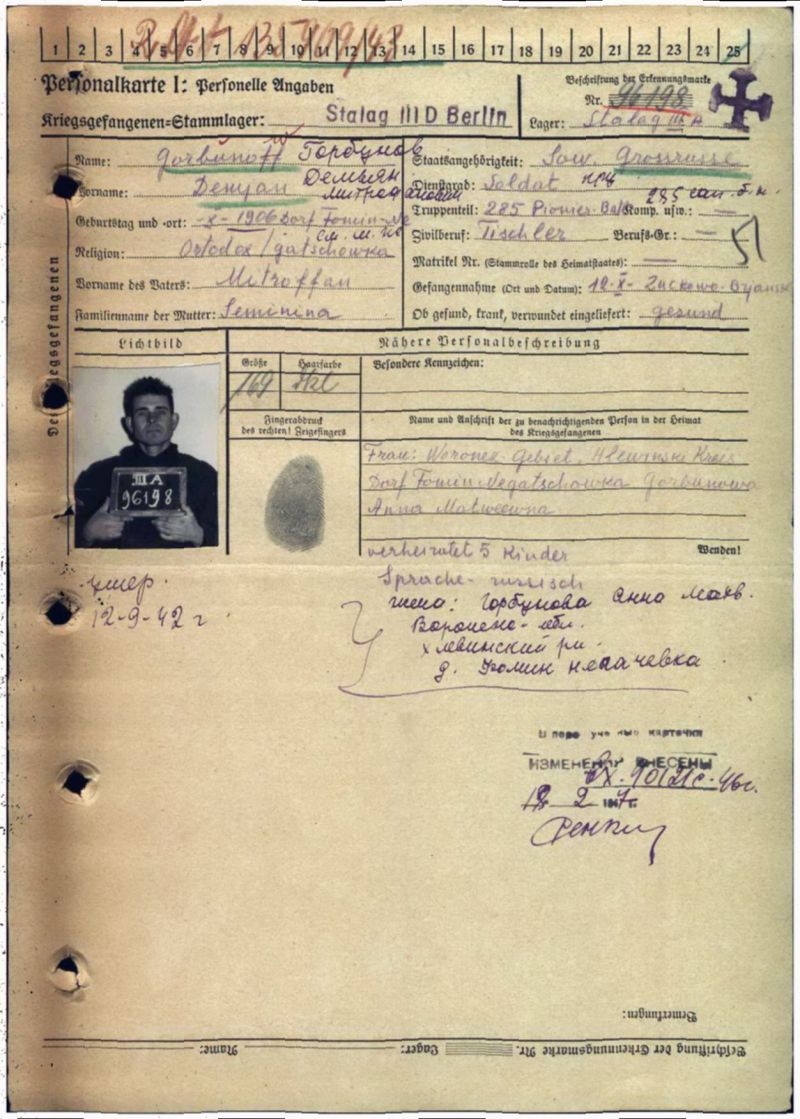 1 2 3 4 5 6 7 8 9 10 11 12 13 14 15 16 17 18 19 20 21 22 23 24 25
Personalkarte I: Personelle Angaben
Kriegsgefangenen=Stammlager: Stalag III D Berlin
Beschriftung der Erkennungsmarke
Nr. 96198
Lager: Stalag III A
Des Kriegsgefangenen
Name: Gorbunoff Горбунов
Vorname: Demyan Демьян
Митрофанович
Geburtstag und =ort: -X- 1906 Dorf Fomin-Ne
Religion: Ortodox / gatschowka
Vorname des Vaters: Mitroffan
Familienname der Mutter: Seminina
Staatsangehörigkeit: Sow. Grossrusse
Dienstgrad: Soldat
Truppenteil: 285 Pionier-Bat. Komp. usw.: —
Zivilberuf: Tischler Berufs=Gr.: —
Matrikel Nr. (Stammrolle des Heimatstaates): —
Gefangennahme (Ort und Datum): 12-X-
Ob gesund, krank, verwundet eingeliefert: gesund
Lichtbild
Nähere Personalbeschreibung
Größe
169
Haarfarbe
dkl
Besondere Kennzeichen:
III A
96198
Fingerabdruck
des rechten! Zeigefingers
Name und Anschrift der zu benachrichtigenden Person in der Heimat
des Kriegsgefangenen
Frau: Woronex-Gebiet, Hlewinski Kreis
Dorf Fomin Negatschowka Gorbunowa
Anna Matweewna
verheiratet 5 Kinder
Wenden!
Sprache-russisch
умер.
12-9-42 г
жена: Горбунова Анна Матв.
Воронеж-обл.
Хлевинский рн.
д. Фомин Негачевка
ИЗМЕНЕНИЯ ВНЕСЕНЫ
Bemerkungen:
Beschriftung der Erkennungsmarke Nr. Lager: Name: